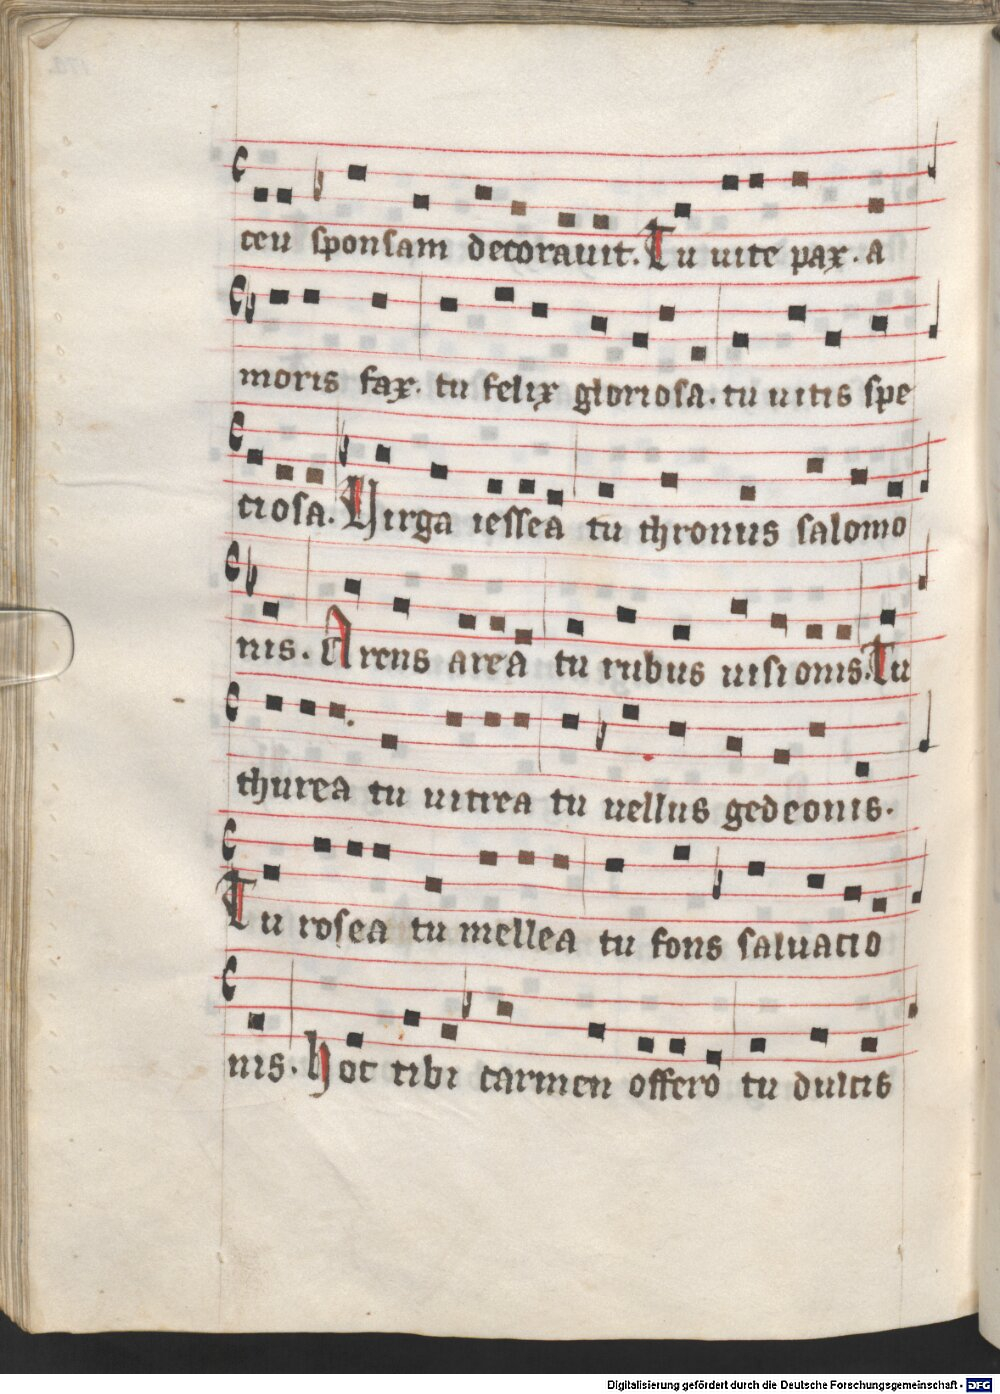 ceu sponsam decorauit. Tu uite pax. a
moris fax. tu felix gloriosa. tu uitis spe
ciosa. Virga iessea tu thronus salomo
nis. Arens area tu rubus uisionis. Tu
thurea tu uitrea tu uellus gedeonis.
Tu rosea tu mellea tu fons saluacio
nis. hoc tibi carmen offero tu dulcis
Digitalisierung gefördert durch die Deutsche Forschungsgemeinschaft - DFG